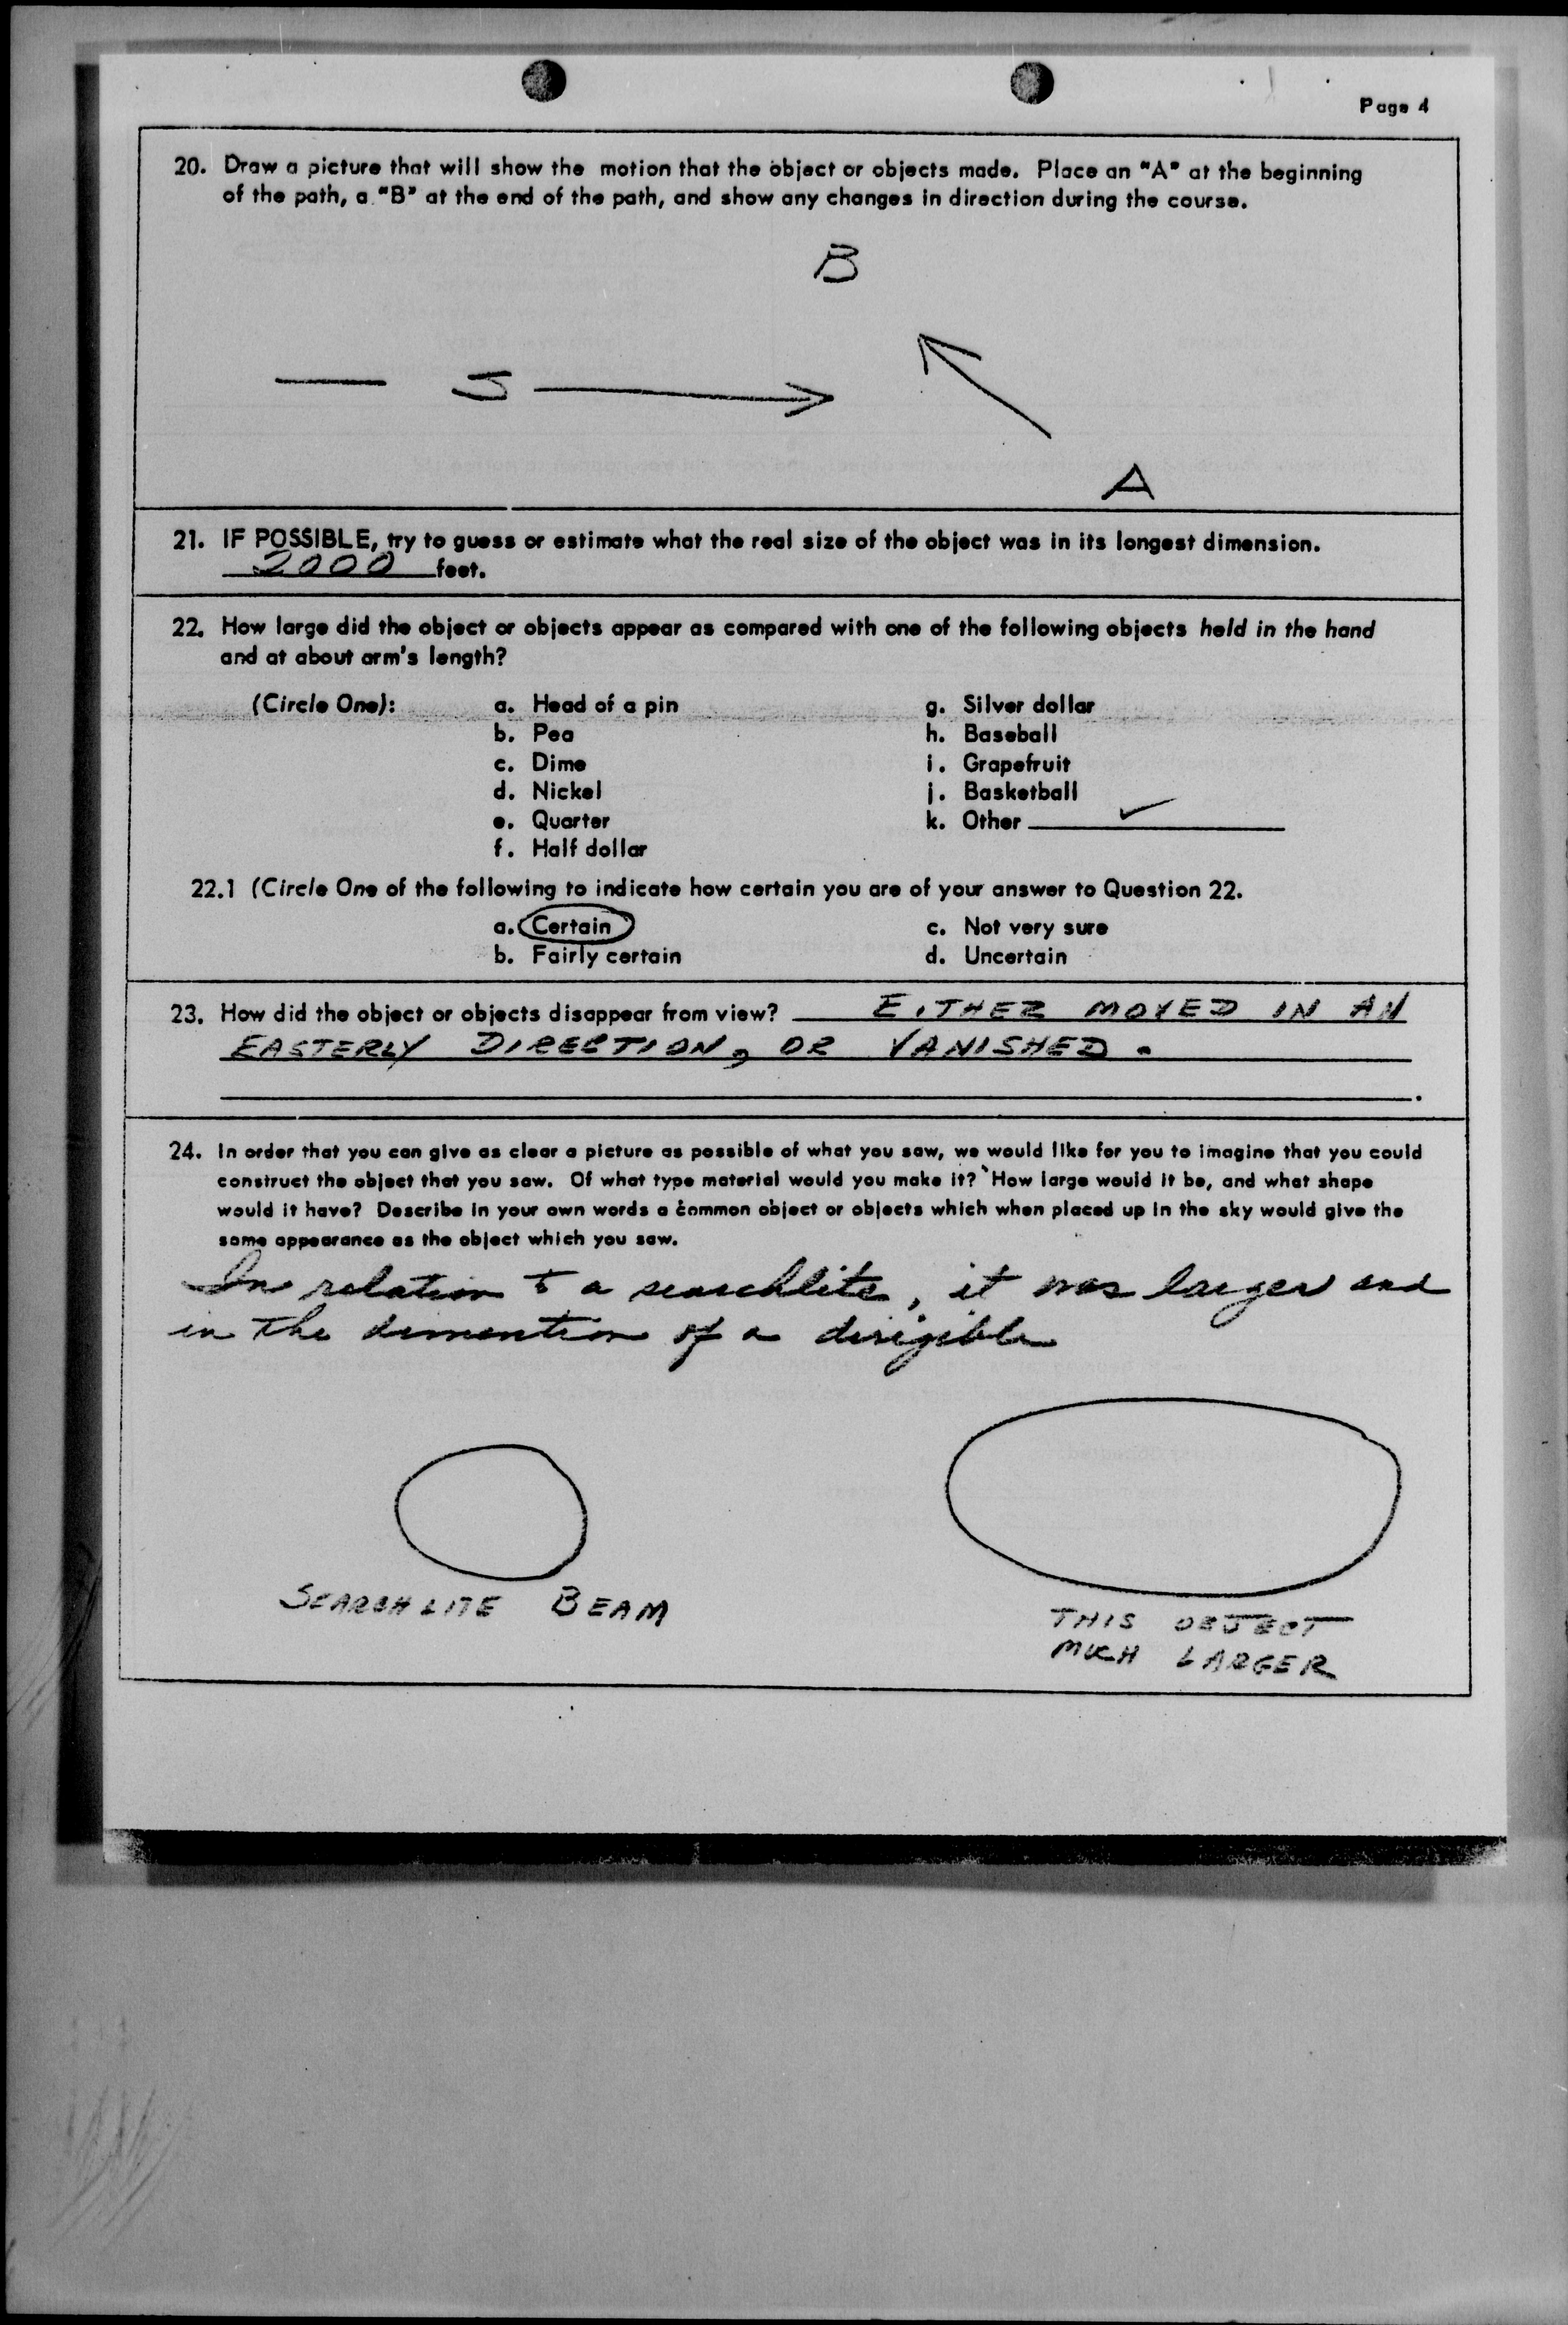 Page 4
20. Draw a picture that will show the motion that the object or objects made. Place an "A" at the beginning
of the path, a "B" at the end of the path, and show any changes in direction during the course.
B
A
21. IF POSSIBLE, try to guess or estimate what the real size of the object was in its longest dimension.
2000 feet.
22. How large did the object or objects appear as compared with one of the following objects held in the hand
and at about arm's length?
(Circle One): a. Head of a pin g. Silver dollar
b. Pea h. Baseball
c. Dime i. Grapefruit
d. Nickel j. Basketball
e. Quarter k. Other ✓
f. Half dollar
22.1 (Circle One of the following to indicate how certain you are of your answer to Question 22.
a. Certain c. Not very sure
b. Fairly certain d. Uncertain
23. How did the object or objects disappear from view? EITHER MOVED IN AN
EASTERLY DIRECTION, OR VANISHED.
24. In order that you can give as clear a picture as possible of what you saw, we would like for you to imagine that you could
construct the object that you saw. Of what type material would you make it? How large would it be, and what shape
would it have? Describe in your own words a common object or objects which when placed up in the sky would give the
same appearance as the object which you saw.
In relation to a searchlite, it was larger and
in the dimention of a dirigible
SEARCHLITE BEAM
THIS OBJECT
MUCH LARGER